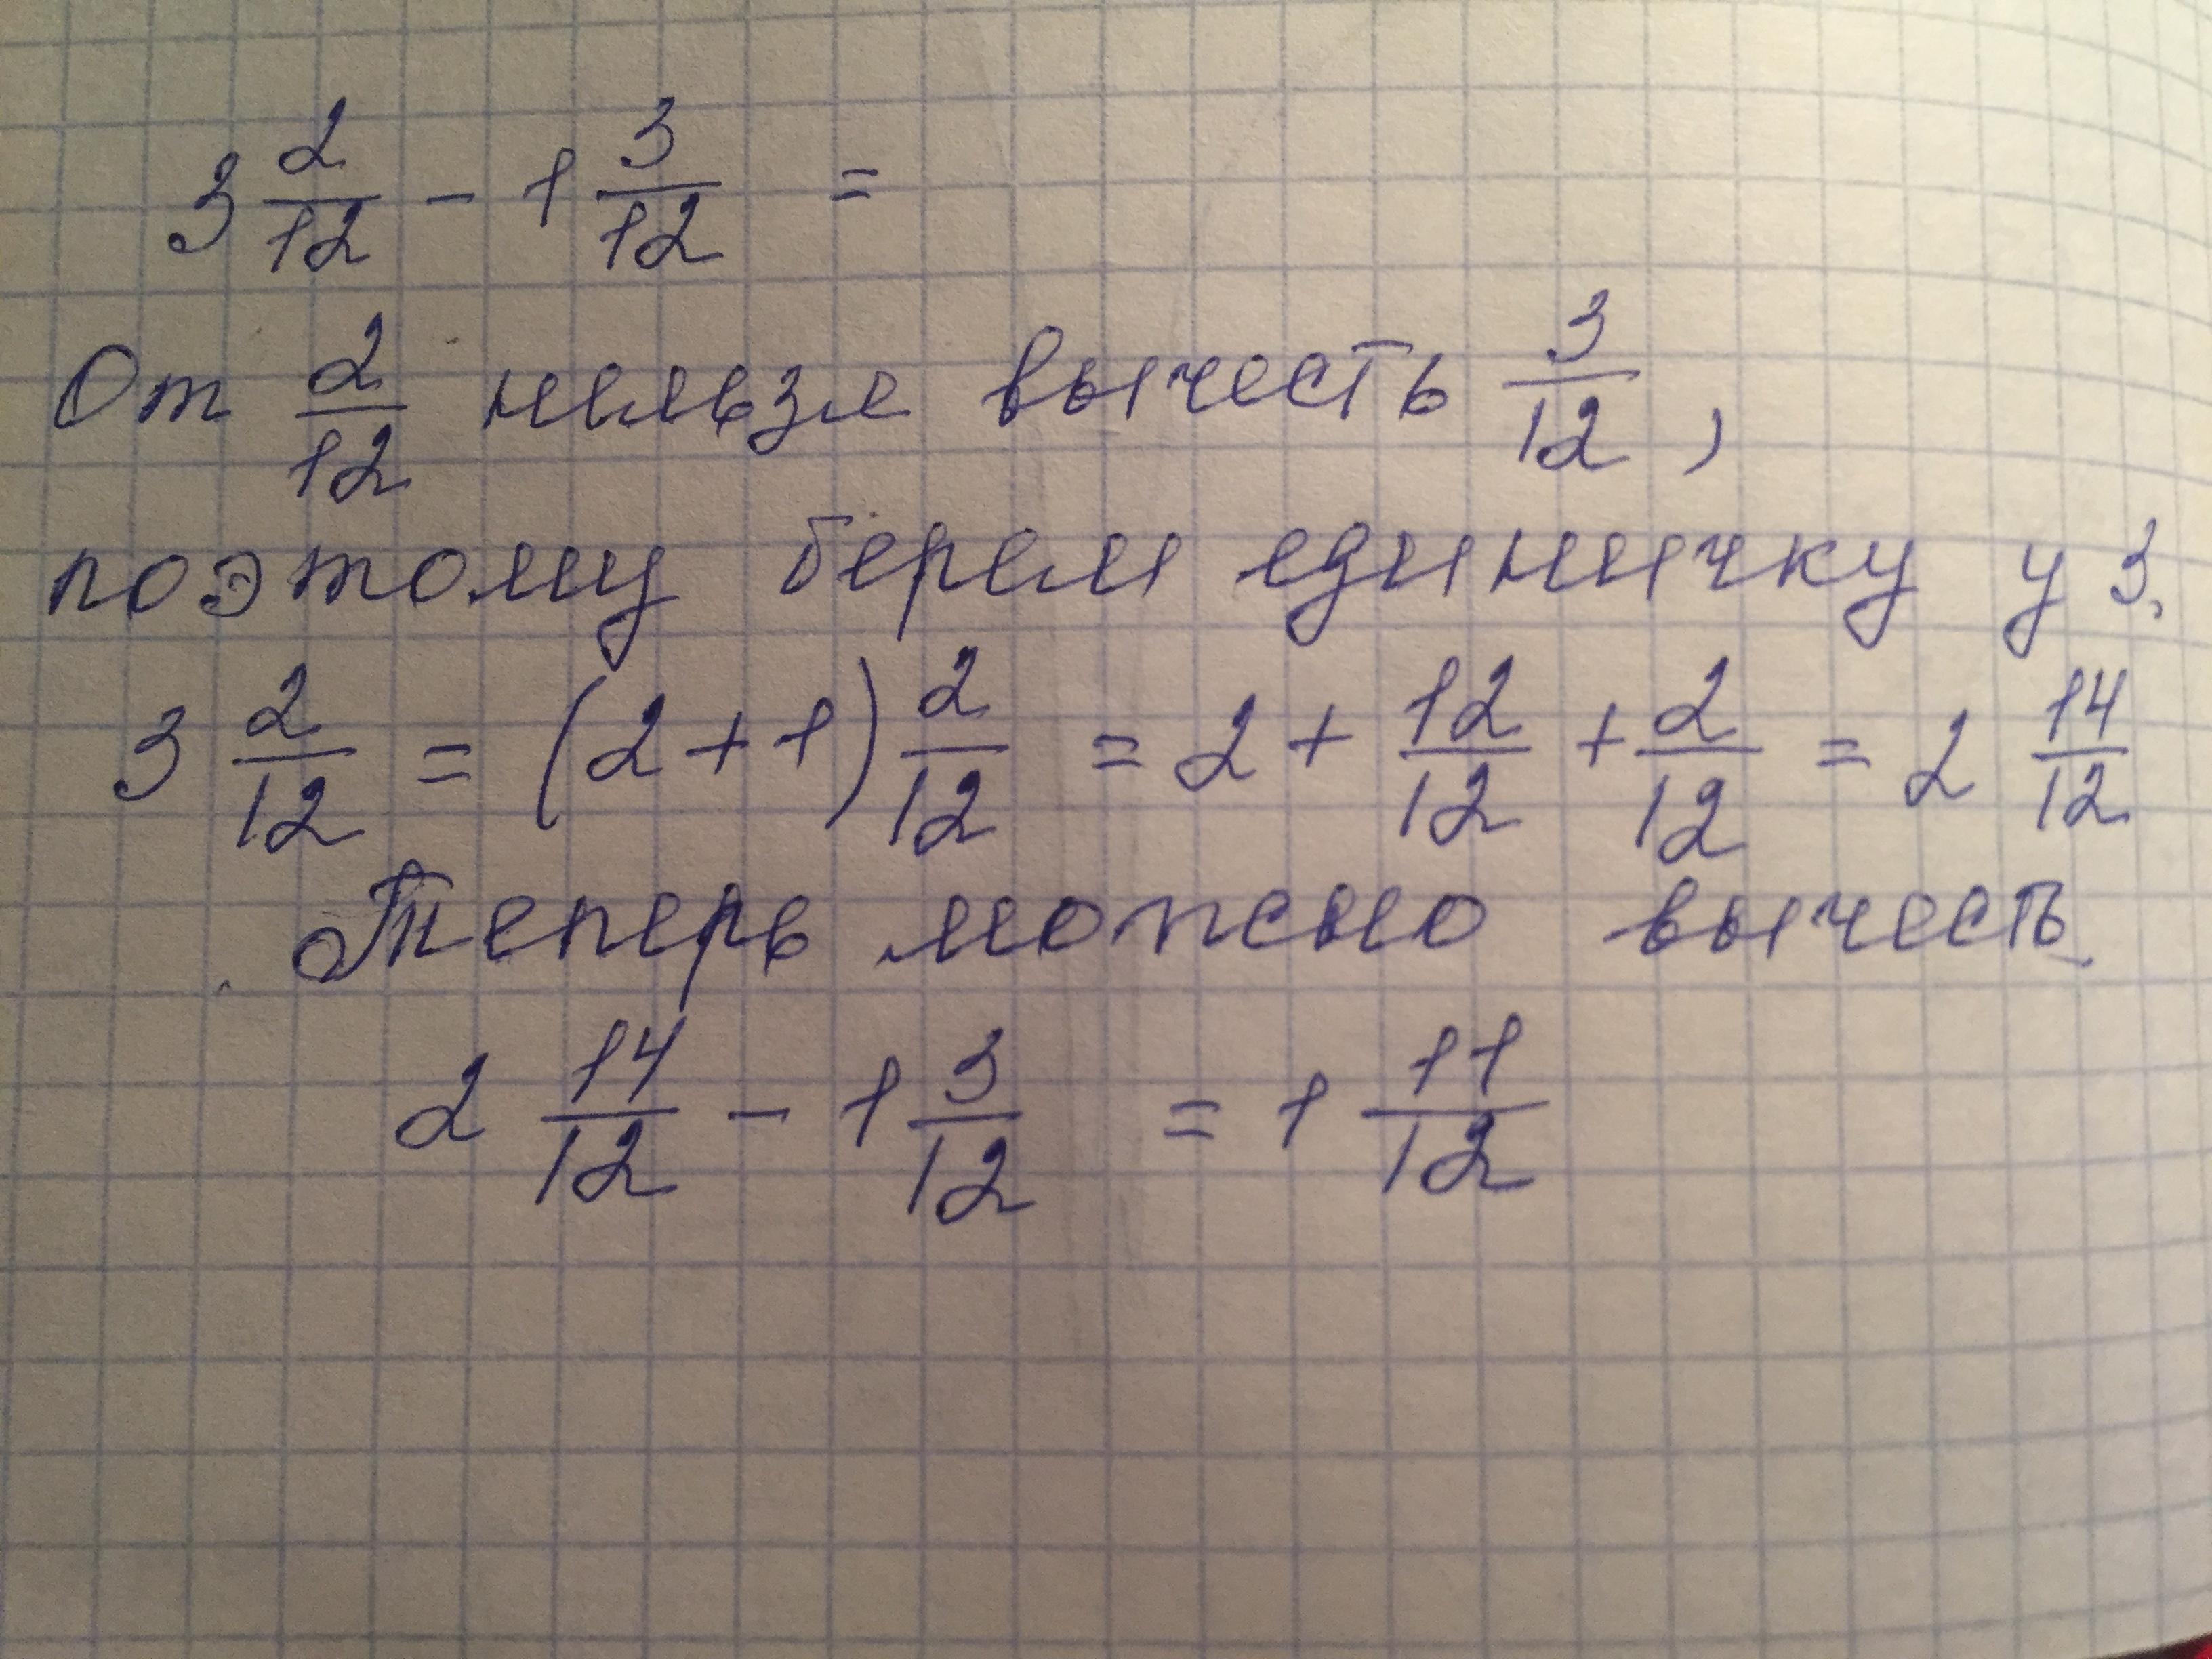 3 2/12 - 1 3/12 =
От 2/12 нельзя вычесть 3/12,
поэтому берем единичку у 3.
3 2/12 = (2+1) 2/12 = 2 + 12/12 + 2/12 = 2 14/12
Теперь можно вычесть.
2 14/12 - 1 3/12 = 1 11/12